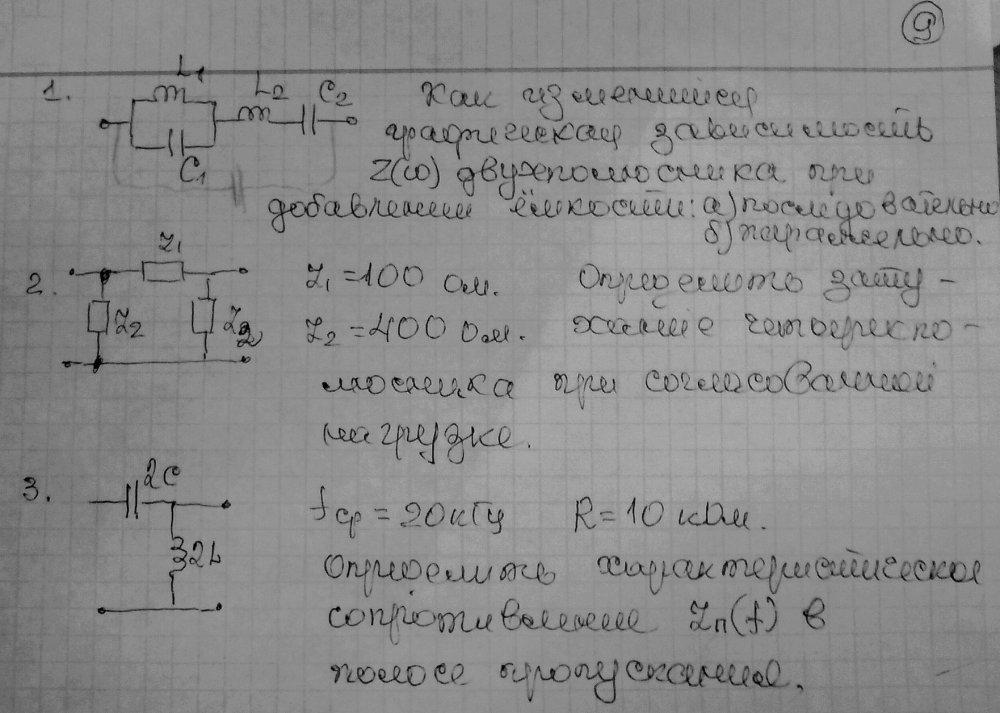 9
1. L1 L2 C2 Как изменится
C1 графическая зависимость
Z(ω) двухполюсника при
добавлении ёмкости: а) последовательно
б) параллельно.
2. Z1 Z2 Z2 Z1 = 100 Ом. Определить зату-
Z2 = 400 Ом. хание четырехпо-
люсника при согласованной
нагрузке.
3. 2C 2L fср = 20 кГц R = 10 кОм.
Определить характеристическое
сопротивление Zп(f) в
полосе пропускания.